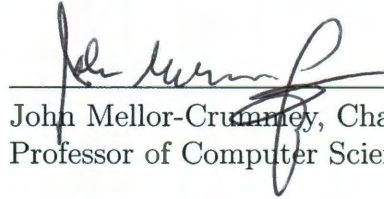 John Mellor-Crummey, Cha
Professor of Computer Scien